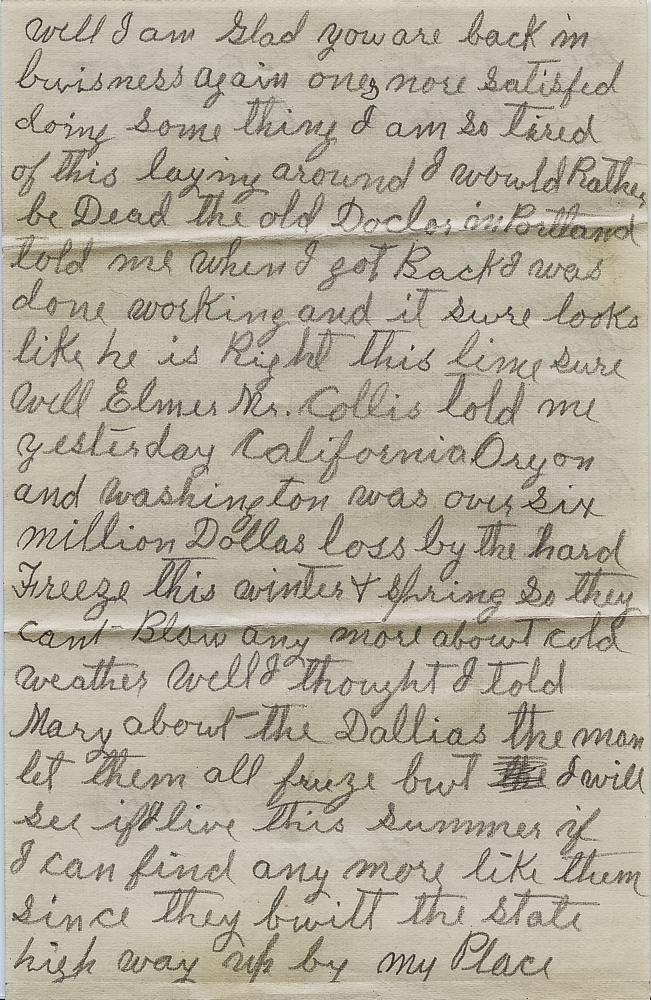 Well I am Glad you are back in
buisness again ones more satisfed
doing some thing I am so tired
of this laying around I would Rather
be Dead the old Doctor in Portland
told me when I got Back I was
done working and it sure looks
like he is Right this time sure
Well Elmer Mr. Collis told me
yesterday California Orgon
and Washington was over six
million Dollas loss by the hard
Freeze this winter & spring so they
cant Blow any more about cold
weather Well I thought I told
Mary about the Dallias the man
let them all fruze but I will
see if I live this summer if
I can find any more like them
since they buitt the state
high way up by my Place